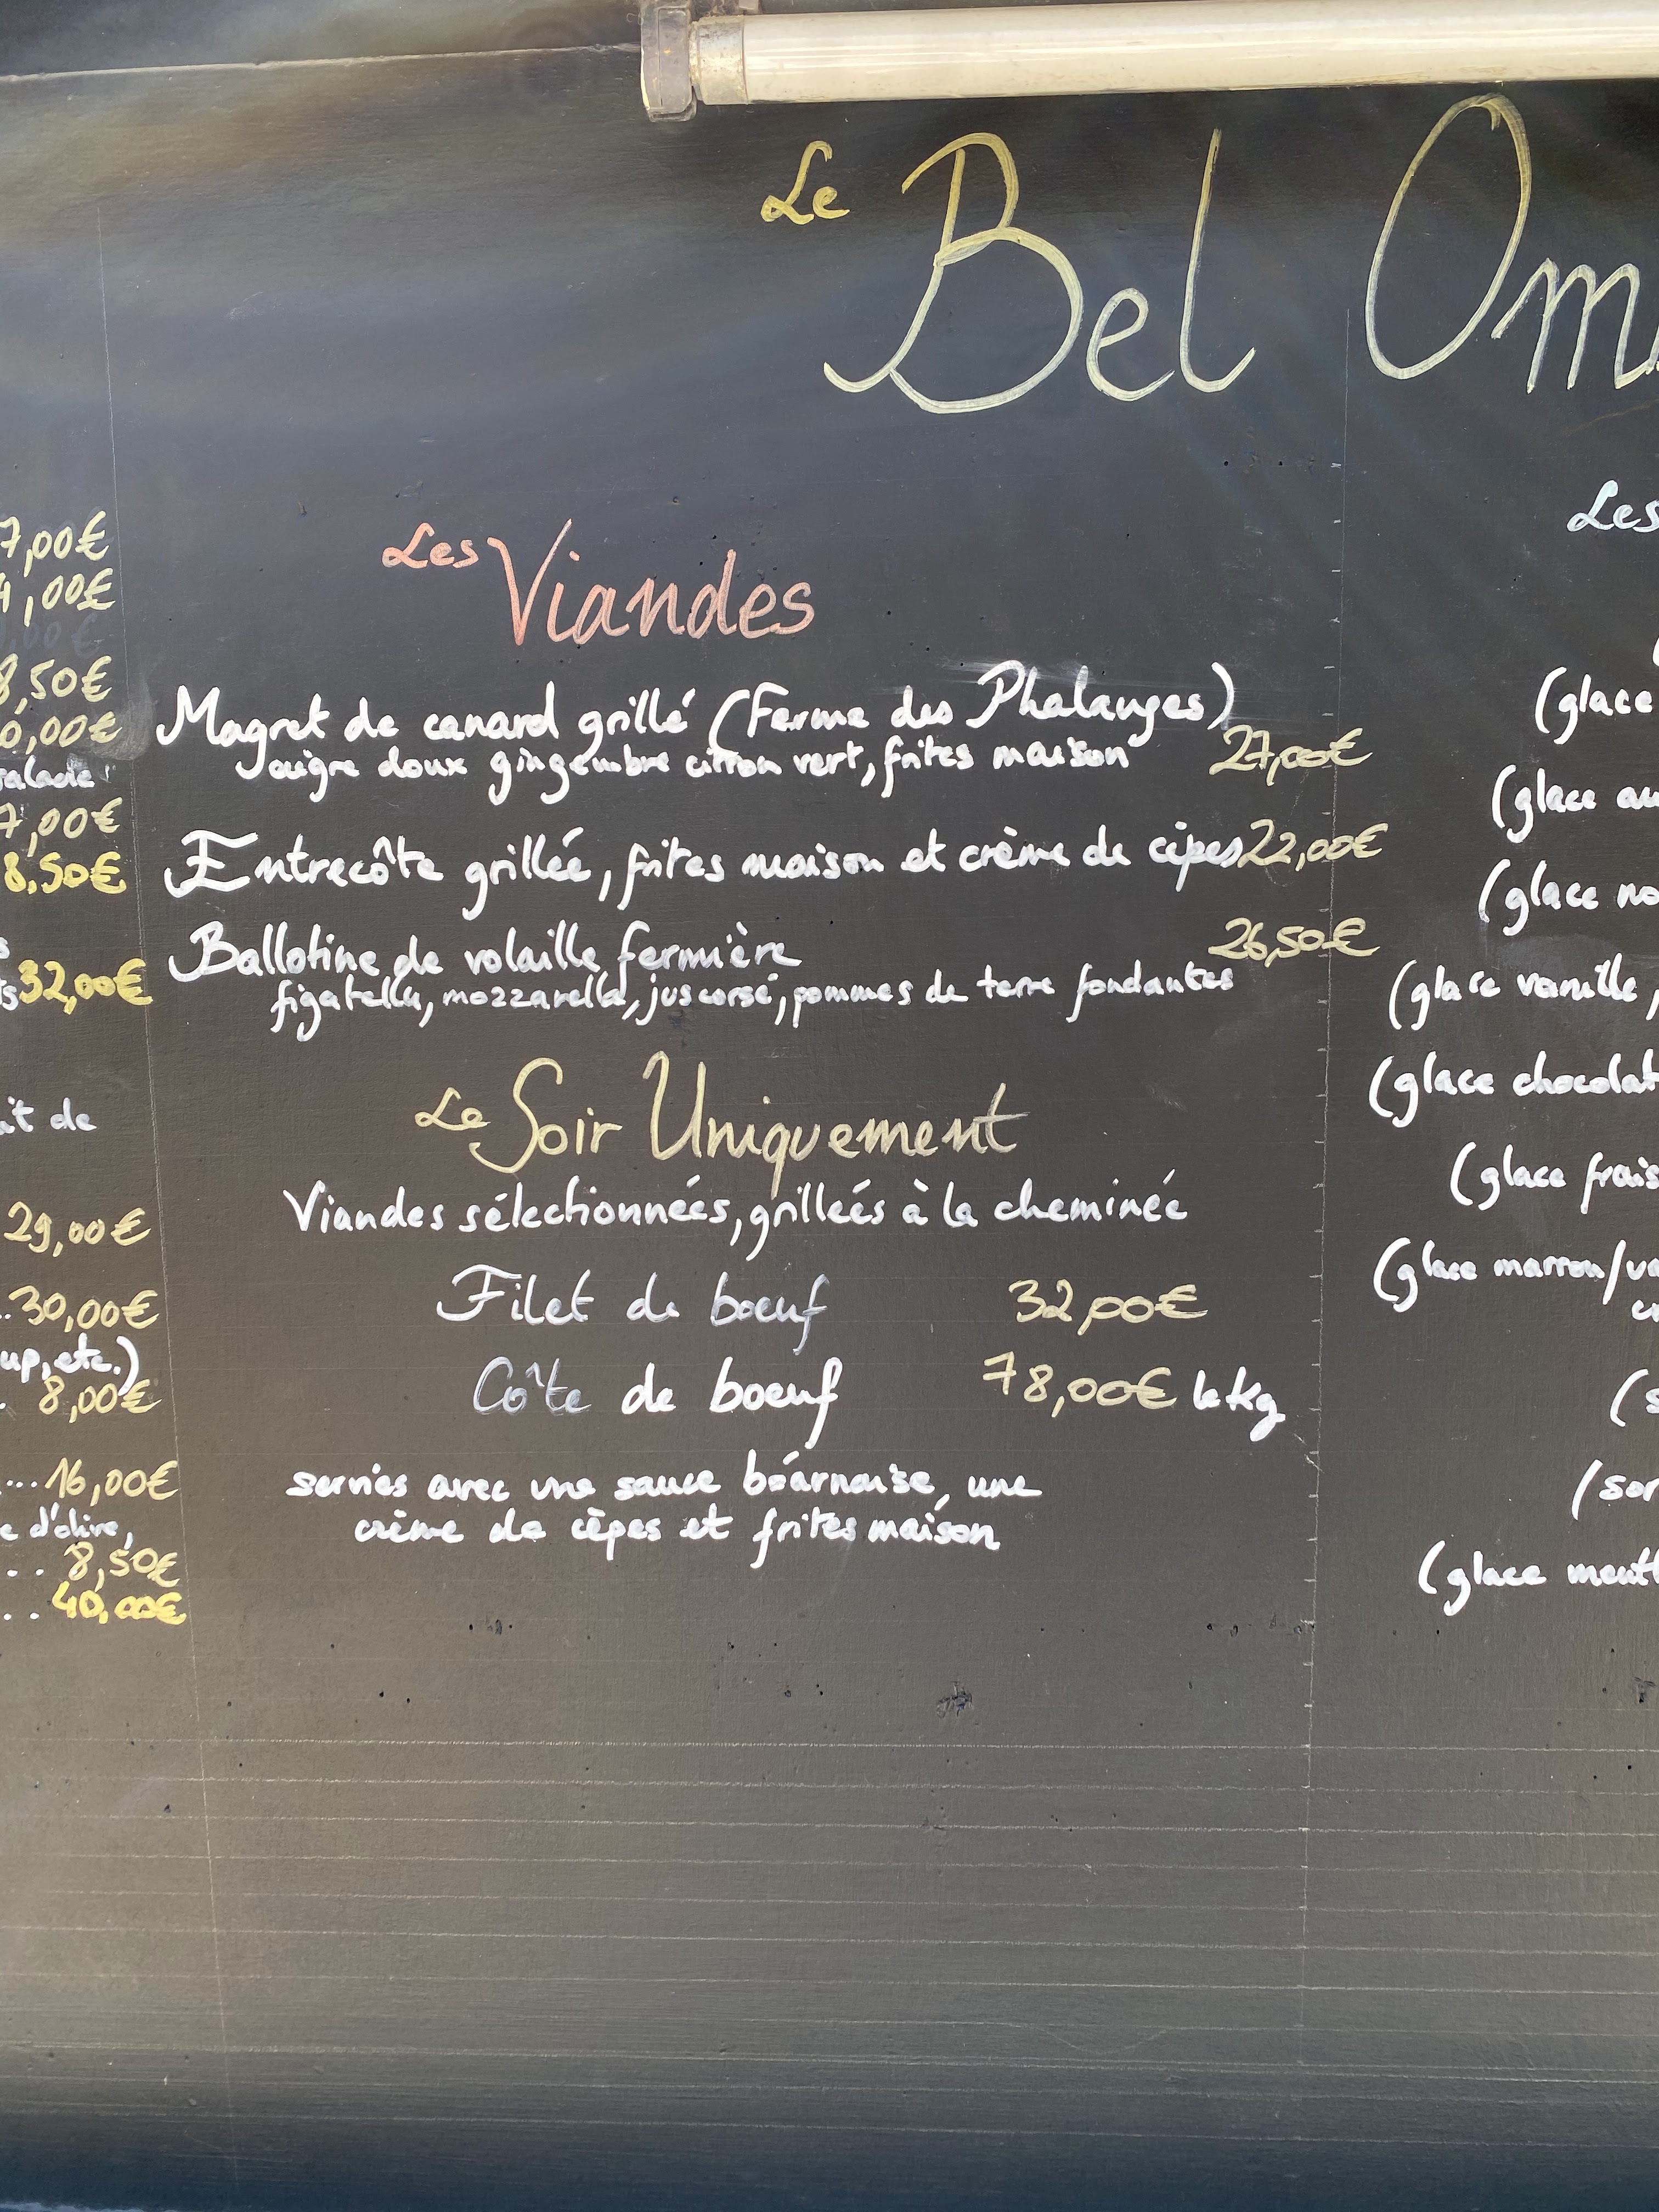 Le Bel Om
7,00€
4,00€
8,50€
0,00€
salade
7,00€
8,50€
s
s 32,00€
it de
29,00€
.. 30,00€
up, etc.)
. 8,00€
... 16,00€
e d'olive,
.. 8,50€
.. 40,00€
Les Viandes
Magret de canard grillé (Ferme des Phalanges)
aigre doux gingembre citron vert, frites maison 27,00€
Entrecôte grillée, frites maison et crème de cèpes 22,00€
Ballotine de volaille fermière 26,50€
figatellu, mozzarella, jus corsé, pommes de terre fondantes
Le Soir Uniquement
Viandes sélectionnées, grillées à la cheminée
Filet de boeuf 32,00€
Côte de boeuf 78,00€ le kg
servies avec une sauce béarnaise, une
crème de cèpes et frites maison
Les
(
(glace
(glace au
(glace no
(glace vanille,
(glace chocolat
(glace frais
(glace marron/va
cr
(s
(sor
(glace menth